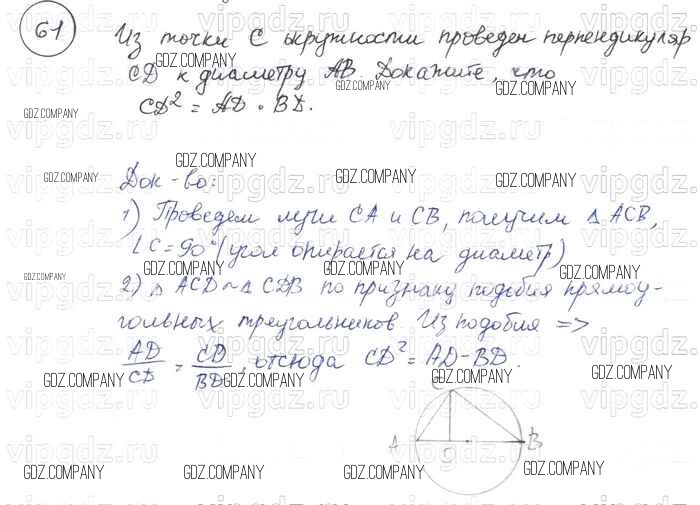 61
Из точки C окружности проведен перпендикуляр
CD к диаметру AB. Докажите, что
CD² = AD · BD.
Док-во:
1) Проведем лучи CA и CB, получим △ ACB,
∠C = 90° (угол опирается на диаметр)
2) △ ACD ~ △ CDB по признаку подобия прямоу-
гольных треугольников. Из подобия =>
AD/CD = CD/BD, отсюда CD² = AD - BD.
C
A D B
GDZ.COMPANY
vipgdz.ru